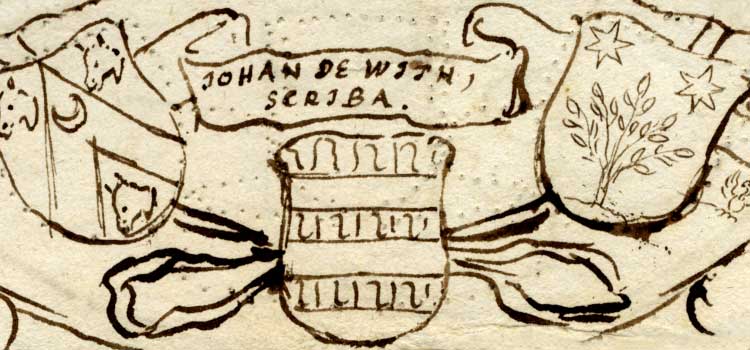 JOHAN DE WITH,
SCRIBA.